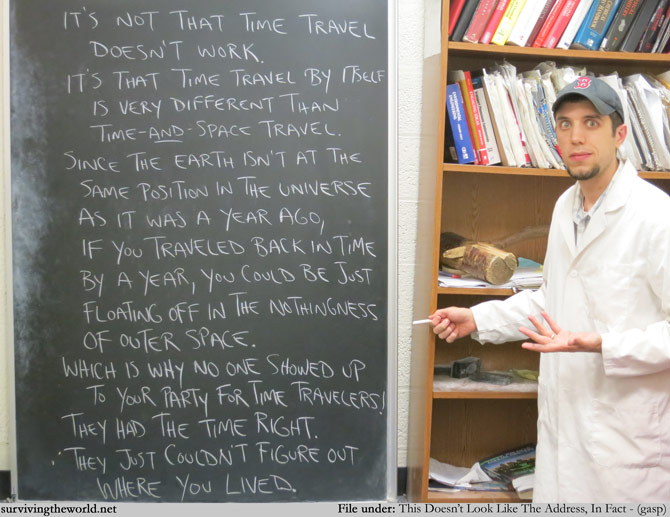 IT'S NOT THAT TIME TRAVEL
DOESN'T WORK.
IT'S THAT TIME TRAVEL BY ITSELF
IS VERY DIFFERENT THAN
TIME-AND-SPACE TRAVEL.
SINCE THE EARTH ISN'T AT THE
SAME POSITION IN THE UNIVERSE
AS IT WAS A YEAR AGO,
IF YOU TRAVELED BACK IN TIME
BY A YEAR, YOU COULD BE JUST
FLOATING OFF IN THE NOTHINGNESS
OF OUTER SPACE.
WHICH IS WHY NO ONE SHOWED UP
TO YOUR PARTY FOR TIME TRAVELERS!
THEY HAD THE TIME RIGHT.
THEY JUST COULDN'T FIGURE OUT
WHERE YOU LIVED.
B
survivingtheworld.net
File under: This Doesn't Look Like The Address, In Fact - (gasp)